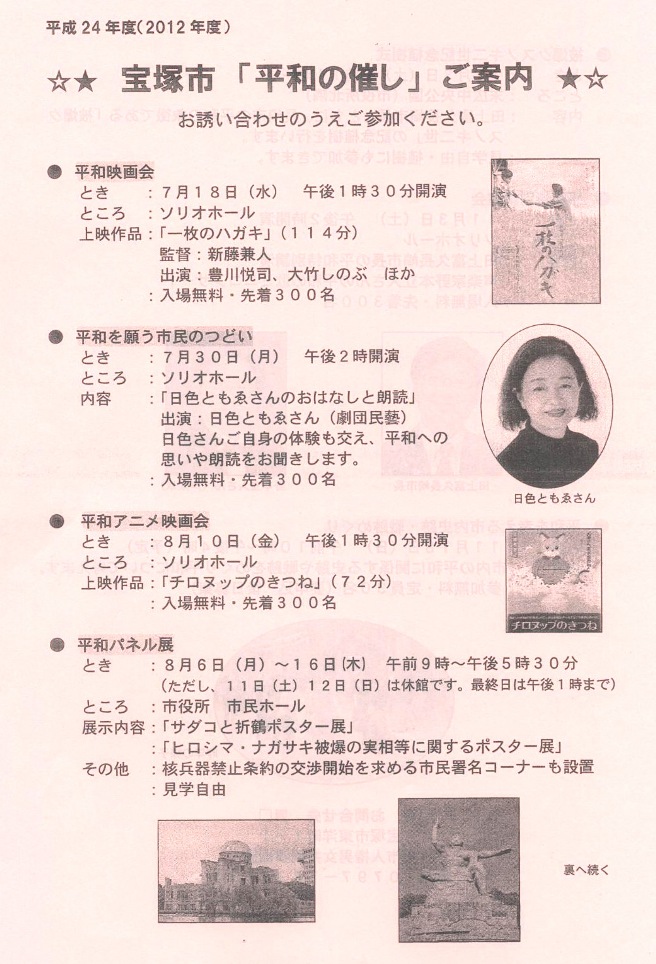 平成24年度(2012年度)
☆★ 宝塚市「平和の催し」ご案内 ★☆
お誘い合わせのうえご参加ください。
● 平和映画会
とき ：７月１８日（水） 午後１時３０分開演
ところ ：ソリオホール
上映作品：「一枚のハガキ」（１１４分）
監督：新藤兼人
出演：豊川悦司、大竹しのぶ ほか
：入場無料・先着３００名
一枚のハガキ
● 平和を願う市民のつどい
とき ：７月３０日（月） 午後２時開演
ところ ：ソリオホール
内容 ：「日色ともゑさんのおはなしと朗読」
出演：日色ともゑさん（劇団民藝）
日色さんご自身の体験も交え、平和への
思いや朗読をお聞きします。
：入場無料・先着３００名
日色ともゑさん
● 平和アニメ映画会
とき ：８月１０日（金） 午後１時３０分開演
ところ ：ソリオホール
上映作品：「チロヌップのきつね」（７２分）
：入場無料・先着３００名
チロヌップのきつね
● 平和パネル展
とき ：８月６日（月）～１６日(木) 午前９時～午後５時３０分
（ただし、１１日（土）１２日（日）は休館です。最終日は午後１時まで）
ところ ：市役所 市民ホール
展示内容：「サダコと折鶴ポスター展」
：「ヒロシマ・ナガサキ被爆の実相等に関するポスター展」
その他 ：核兵器禁止条約の交渉開始を求める市民署名コーナーも設置
：見学自由
裏へ続く